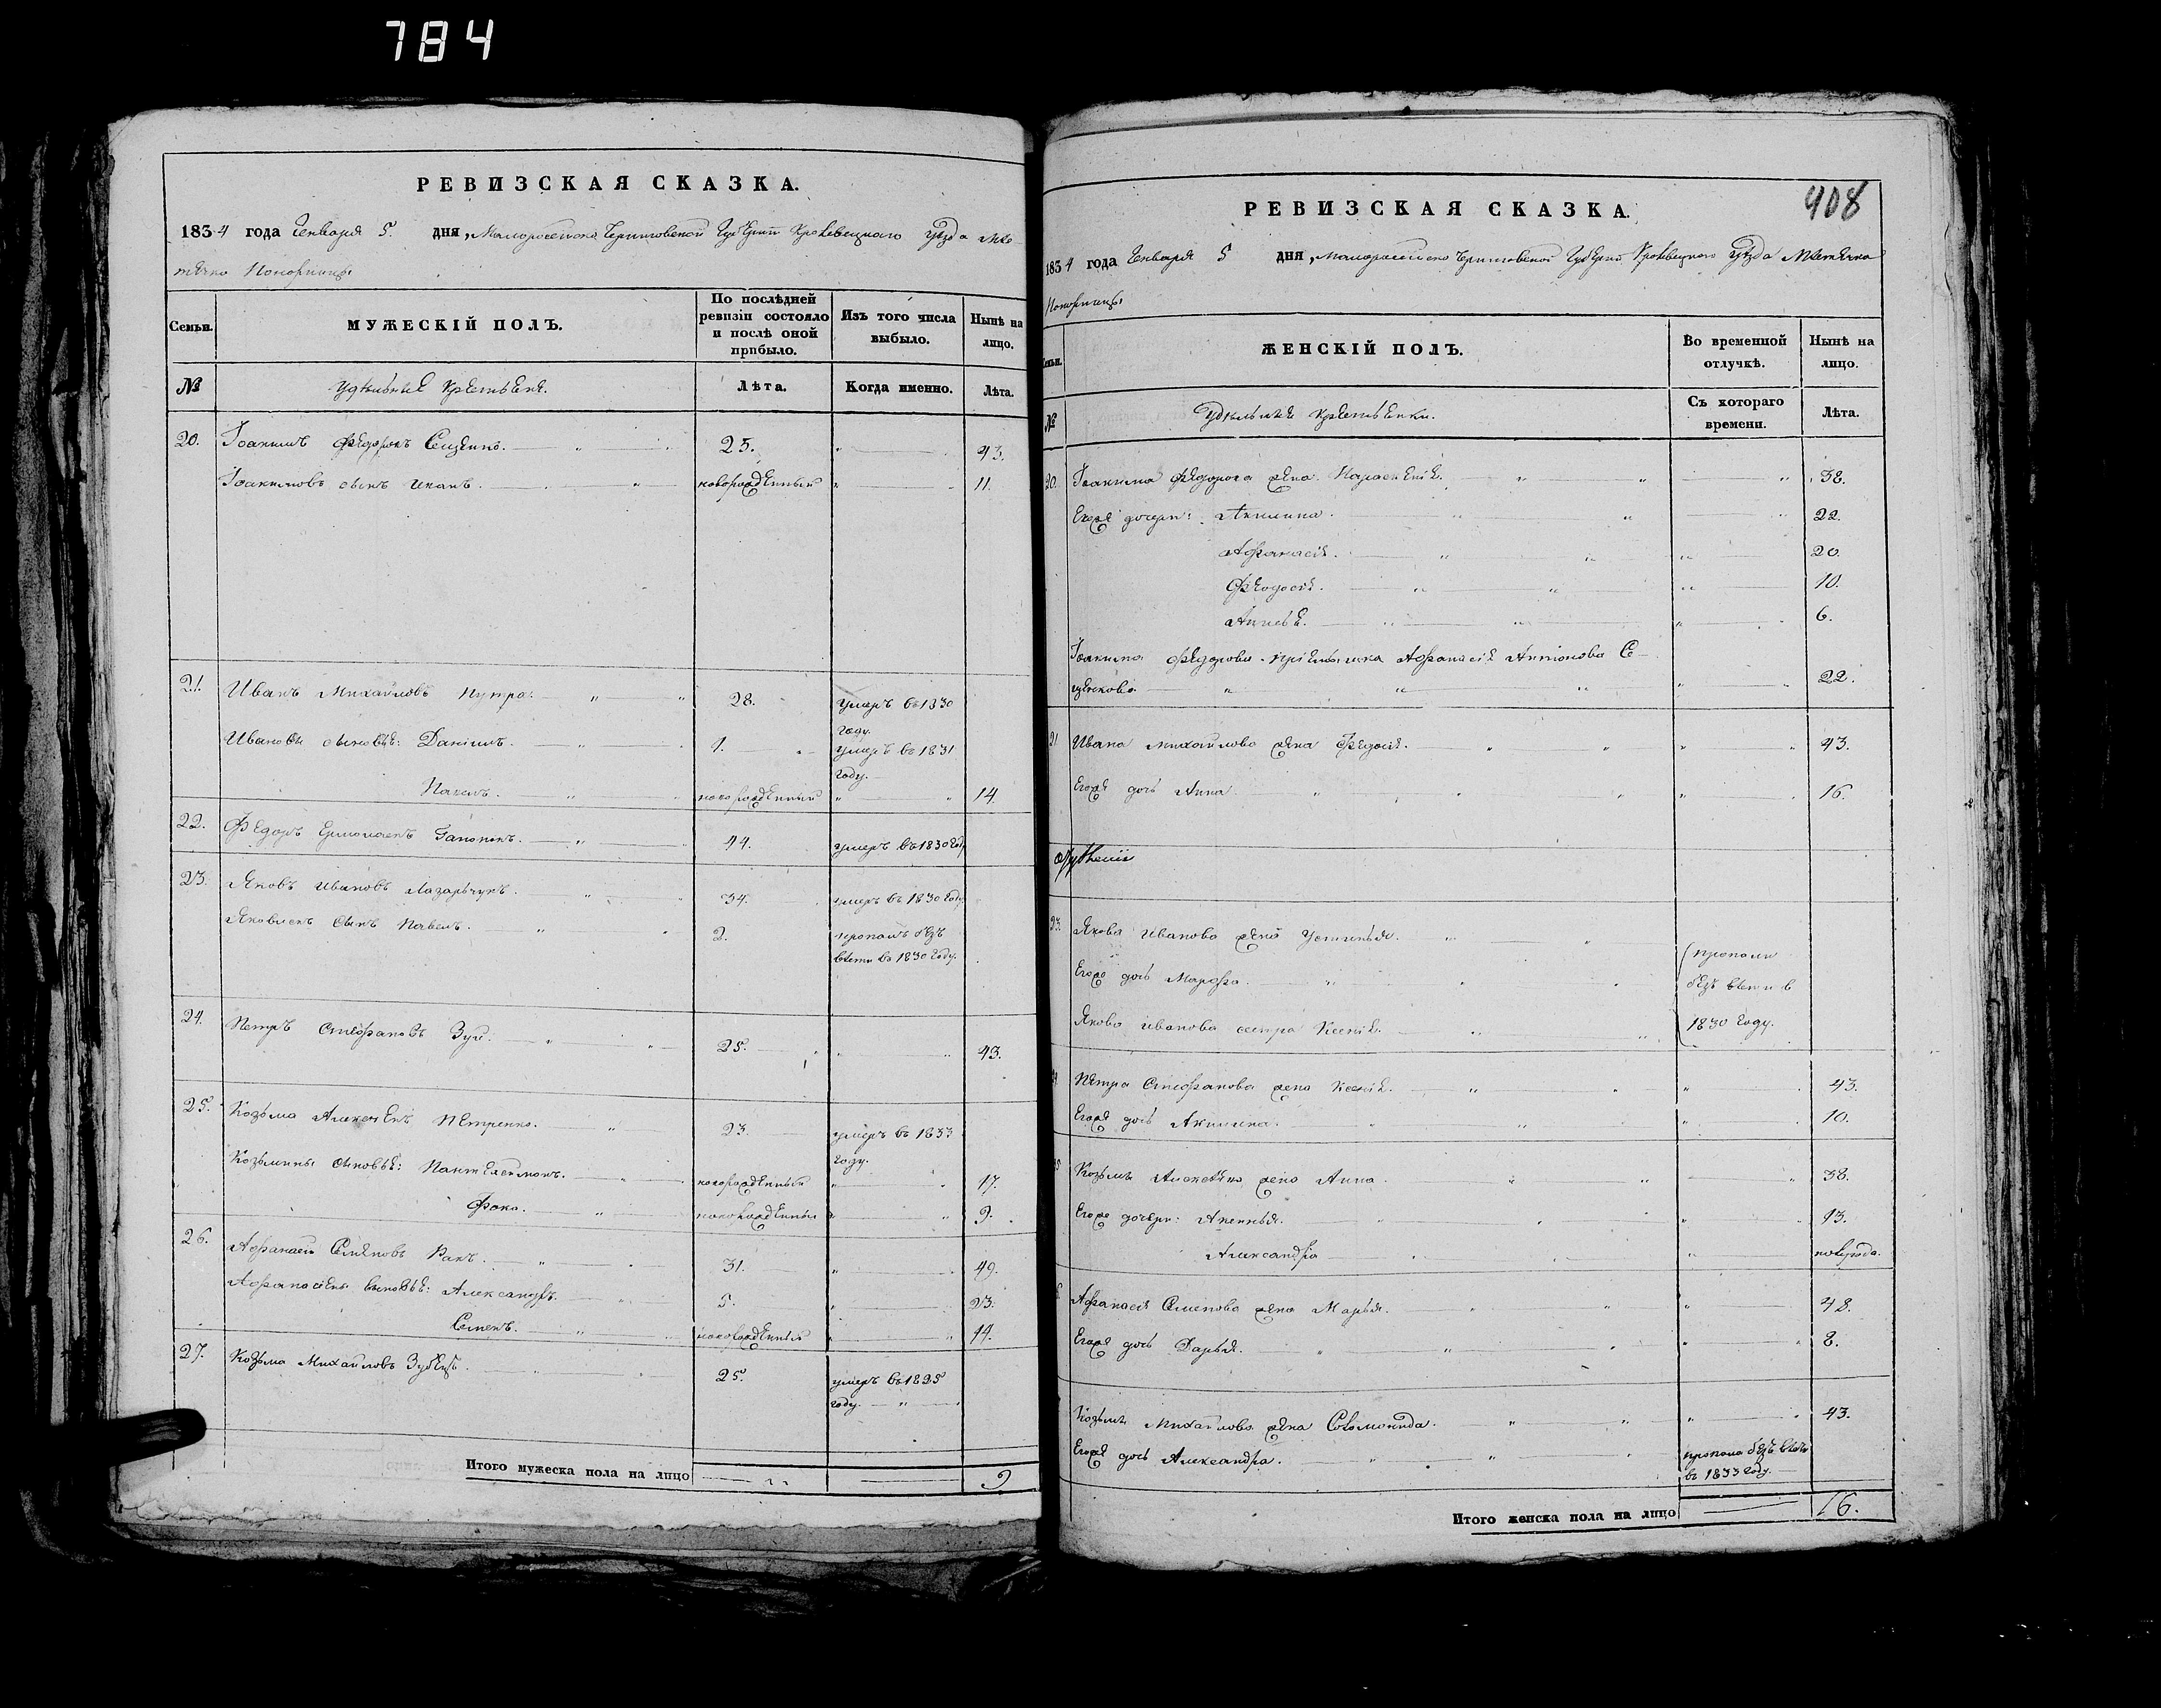 784
РЕВИЗСКАЯ СКАЗКА.
1834 года Генваря 5. дня, Малоросійско Черниговской Губерніи Кролевецкаго уѣзда Мѣс-
течка Понорницы
Семьи.
МУЖЕСКІЙ ПОЛЪ.
По послѣдней ревизіи состояло и послѣ оной прибыло.
Изъ того числа выбыло.
Нынѣ на лицо.
№
Удѣльные крестьяне.
Лѣта.
Когда именно.
Лѣта.
20. Іоакимъ Федоровъ Сещенко. 25. 43.
Іоакимовъ сынъ Иванъ. новорожденный 11.
21. Иванъ Михайловъ Путро. 28. умеръ въ 1830
году.
Ивановы сыновья: Даніилъ. 1. умеръ въ 1831
году.
Павелъ. новорожденный 14.
22. Федоръ Ермолаевъ Гапонов. 44. умеръ въ 1830 году
23. Яковъ Ивановъ Лазарчукъ. 34. умеръ въ 1830 году
Яковлевъ сынъ Павелъ. 2. пропалъ безъ
вѣсти въ 1830 году.
24. Петръ Стефановъ Зуй. 25. 43.
25. Козьма Алексѣевъ Петренко. 23. умеръ въ 1833
году.
Козьмины сыновья: Пантелеимонъ. новорожденный 17.
Фока. новорожденный 9.
26. Афанасій Семеновъ Ракъ. 31. 49.
Афанасіевы сыновья: Александръ. 5. 23.
Семенъ. новорожденный 14.
27. Козьма Михайловъ Зубецъ. 25. умеръ въ 1825
году.
Итого мужеска пола на лицо 9
408
РЕВИЗСКАЯ СКАЗКА.
1834 года Генваря 5 дня, Малоросійско Черниговской Губерніи Кролевецкаго уѣзда Мѣстечка
Понорницы
Семьи.
ЖЕНСКІЙ ПОЛЪ.
Во временной отлучкѣ.
Нынѣ на лицо.
№
Удѣльныя крестьянки.
Съ котораго времени.
Лѣта.
20. Іоакима Федорова жена Параскевія. 38.
Егоже дочери: Акилина. 22.
Афанасія. 20.
Феодосія. 10.
Анисья. 6.
Іоакима Федорова пріемышка Афанасія Антонова Се-
щенкова 22.
21 Ивана Михайлова жена Федосія. 43.
Егоже дочь Анна. 16.
23. Якова Иванова жена Устинья. пропали
Егоже дочь Марфа. безъ вѣсти в
Якова Иванова сестра Ксенія. 1830 году.
Петра Стефанова жена Ксенія. 43.
Егоже дочь Акилина. 10.
Козьмы Алексѣева жена Анна. 38.
Егоже дочери: 13.
Александра полгода.
Афанасія Семенова жена Марья. 48.
Егоже дочь Дарья. 8.
Козьмы Михайлова жена Соломонида. 43.
Егоже дочь Александра. пропала безъ вѣсти
въ 1833 году.
Итого женска пола на лицо 16.